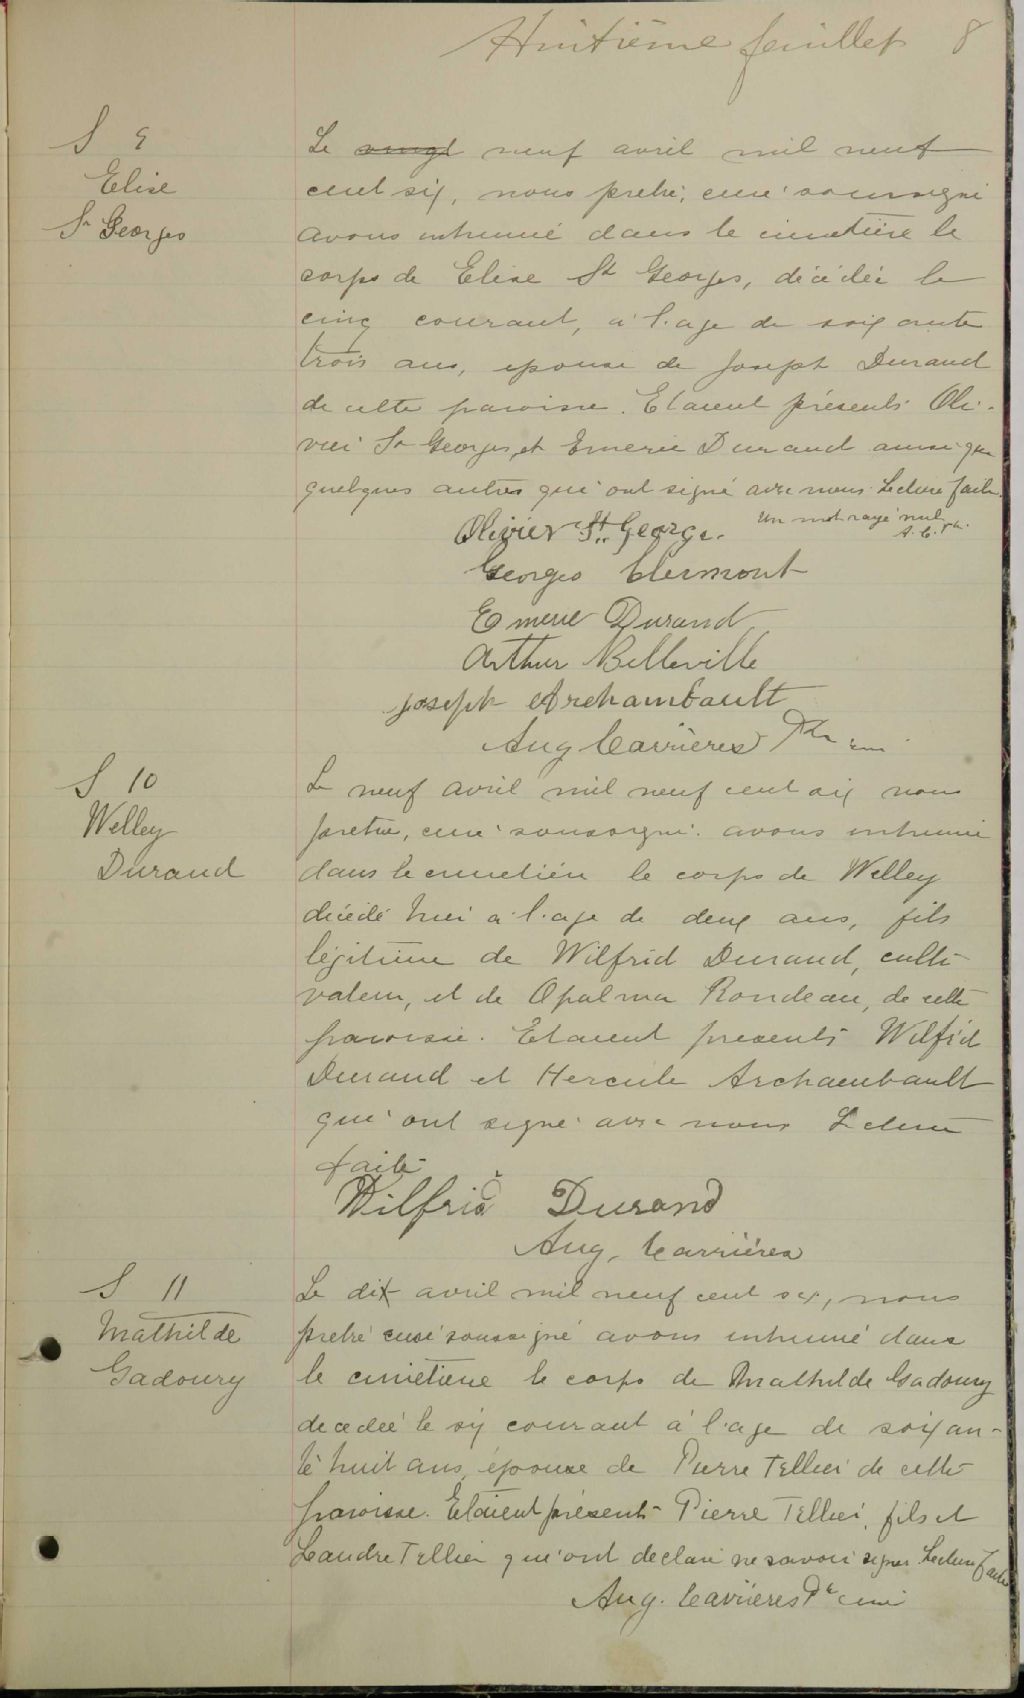 Huitième feuillet 8
S 9
Elise
St Georges
Le vingt neuf avril mil neuf
cent six, nous prêtre, curé soussigné
avons inhumé dans le cimetière le
corps de Elise St Georges, décédée le
cinq courant, à l'age de soixante
trois ans, epouse de Joseph Durand
de cette paroisse. Etaient présents Oli-
vier St Georges, et Emerie Durand ainsi que
quelques autres qui ont signé avec nous. Lecture faite.
Un mot rayé nul
A. C. ptr.
Olivier St. George.
Georges Clermont
Emerie Durand
Arthur Belleville
Joseph Archambault
Aug Carrières Ptr curé
S 10
Welley
Durand
Le neuf avril mil neuf cent six nous
pretre, curé soussigné avons inhumé
dans le cimetière le corps de Welley
décédé hier à l'age de deux ans, fils
légitime de Wilfrid Durand, culti-
vateur, et de Opalma Rondeau, de cette
paroisse. Etaient presents Wilfrid
Durand et Hercule Archambault
qui ont signé avec nous Lecture
faite
Wilfrid Durand
Aug. Carrières
S 11
Mathilde
Gadoury
Le dix avril mil neuf cent six, nous
pretre curé soussigné avons inhumé dans
le cimetière le corps de Mathilde Gadoury
decedée le six courant à l'age de soixan-
te huit ans, épouse de Pierre Tellier de cette
paroisse. Etaient présents Pierre Tellier, fils et
Leandre Tellier qui ont declaré ne savoir signer Lecture faite
Aug. Carrières Ptr curé